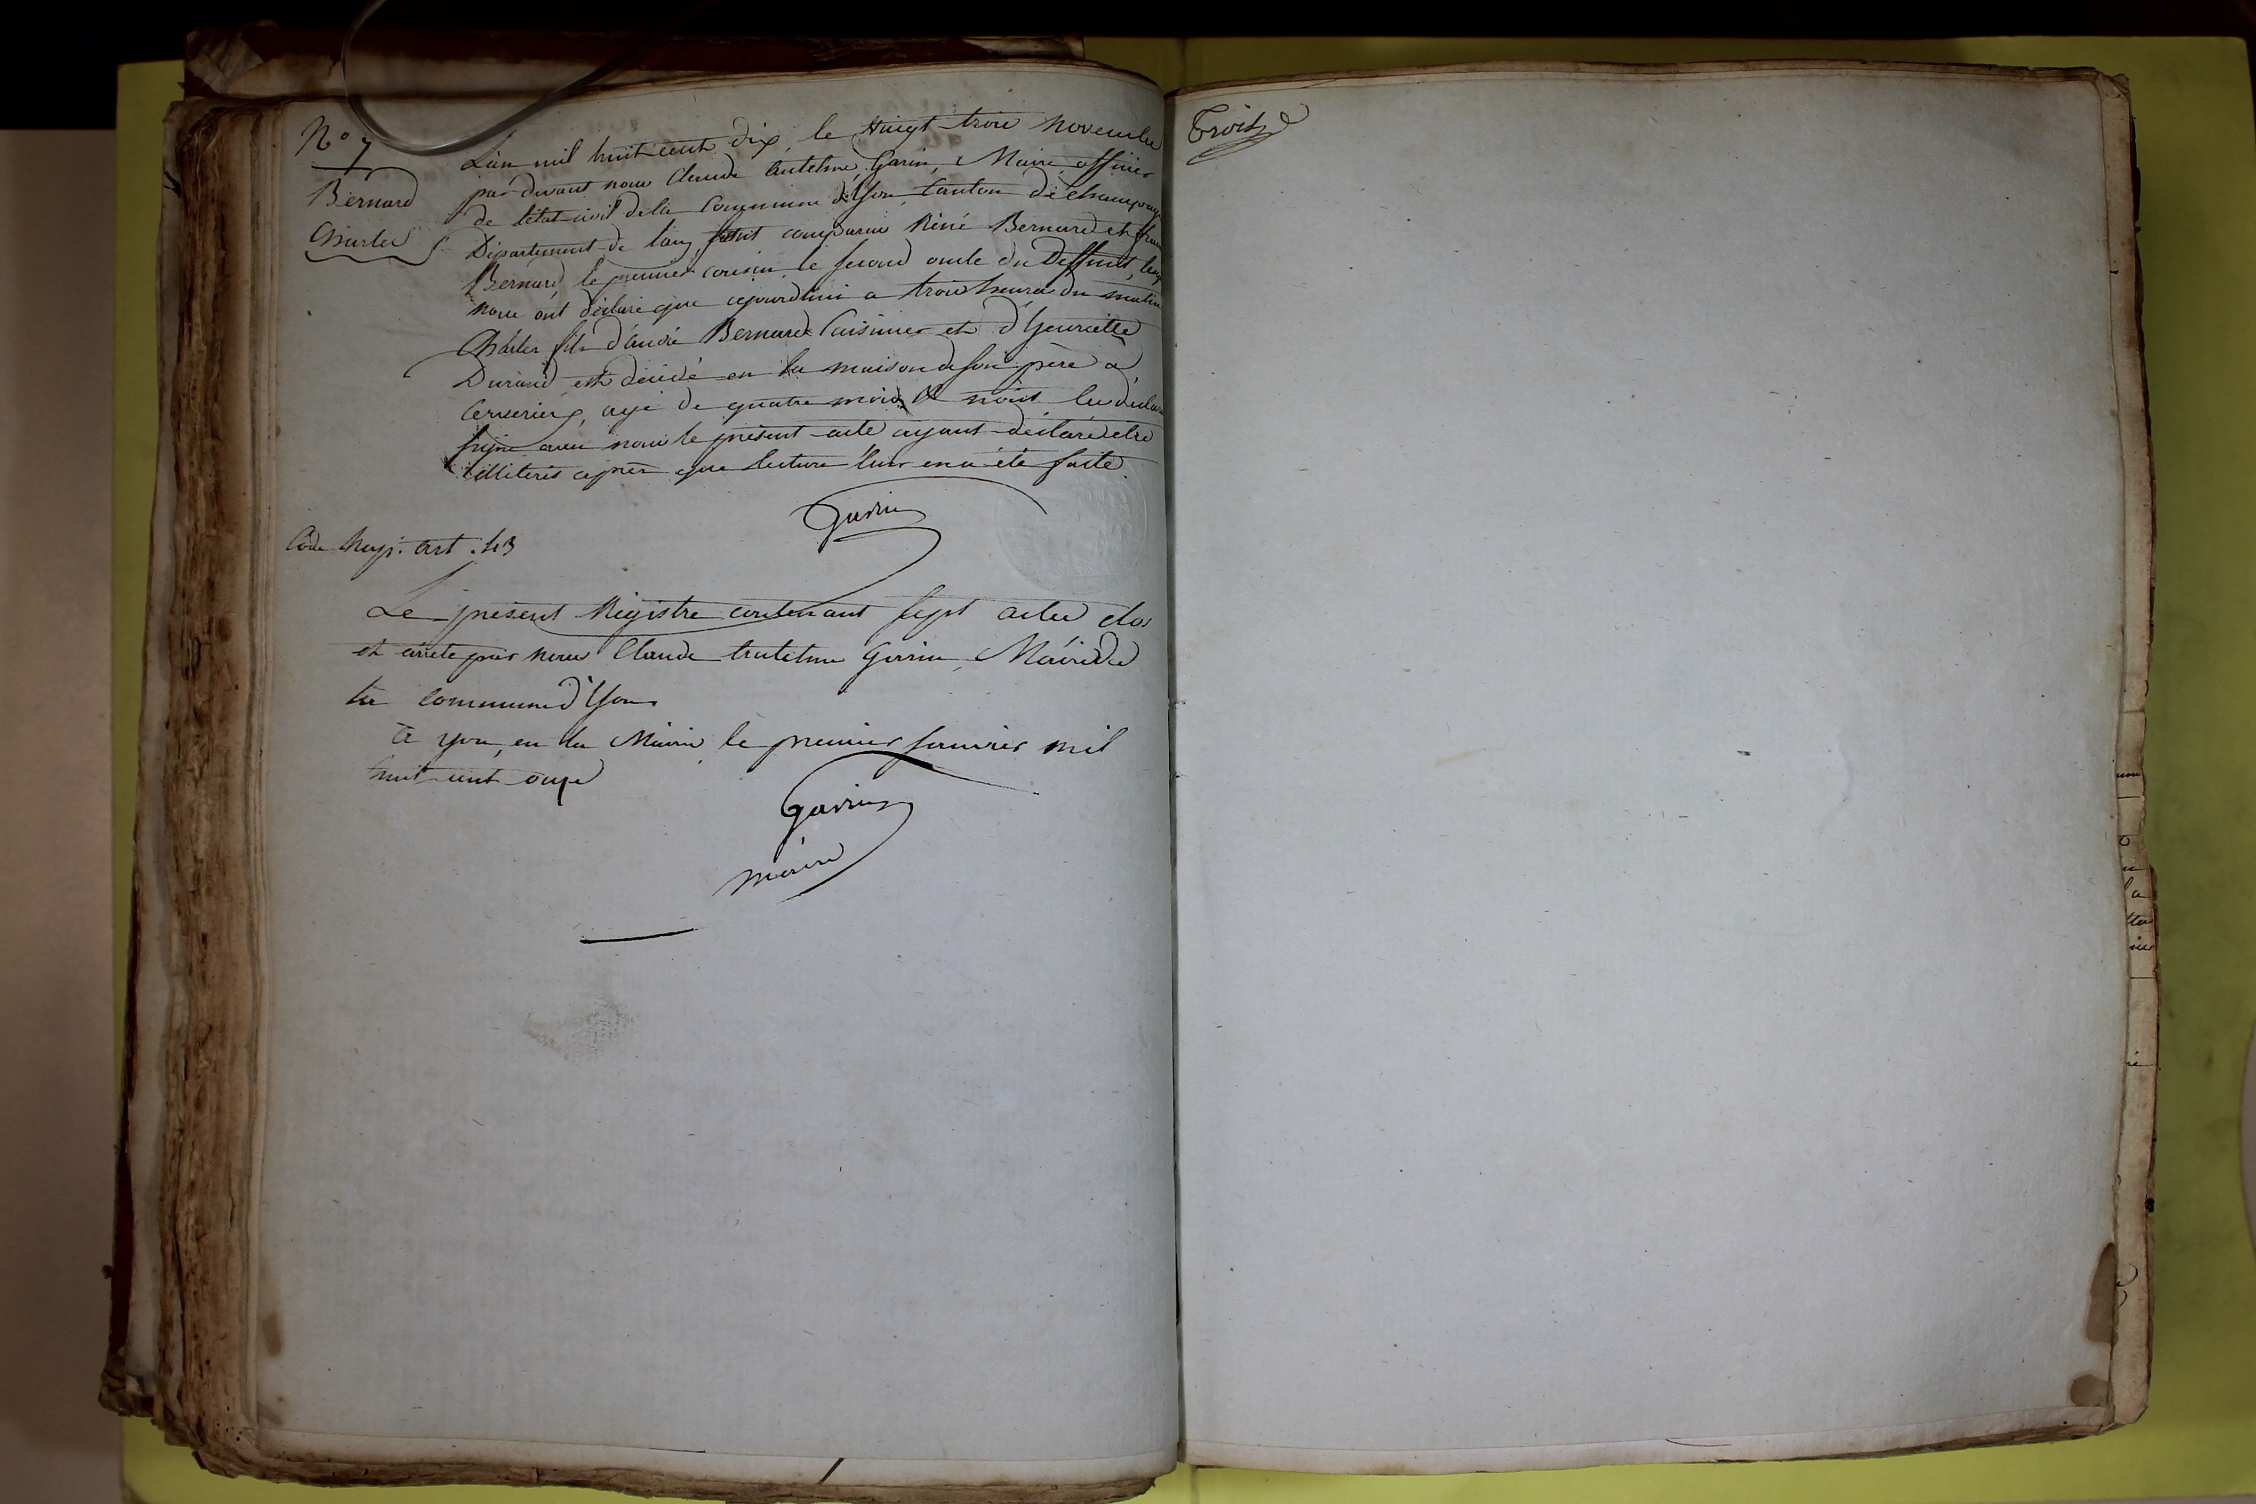 N° 7
Bernard
Charles
L'an mil huit cent dix, le Vingt trois novembre
par devant nous Claude Antelme Garin, Maire officier
de l'état civil de la Commune d'Yon, Canton de Champagne
Département de l'ain, sont comparus Réné Bernard et
Bernard, le premier cousin le second oncle du Deffunt,
nous ont déclaré que ajourdhui a trois heures du matin
Charles fils d'andré Bernard Cuisinier et d'Henriette
Durand est décédé en la maison de son père à
Cerverieux, agé de quatre mois et n'ont les
signé avec nous le présent acte ayant déclaré etre
illiterés après que lecture leur en a été faite
Garin
Code Nap. art. 43
Le présent Registre contenant sept actes clos
et arrete par nous Claude Antelme Garin, Maire de
la commune d'Yon
a yon, en la Mairie, le premier janvier mil
huit cent onze
Garin
maire
Troisе